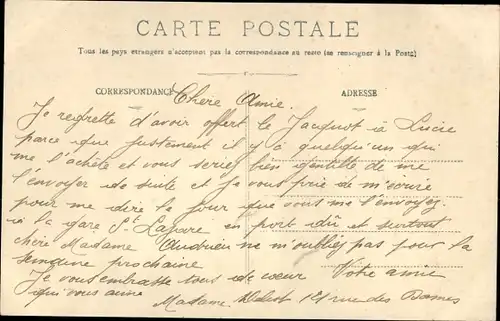 CARTE POSTALE
Tous les pays étrangers n'acceptent pas la correspondance au resto (se renseigner à la Poste)
CORRESPONDANCE ADRESSE
Chère Amie.
Je regrette d'avoir offert le Jacquot à Lucie
parce que justement il y a quelqu'un qui
me l'achète et vous seriez bien gentille de me
l'envoyer de suite et je vous prie de m'écrire
pour me dire le jour que vous me l'envoyez.
à la gare St Lazare en port dû et surtout
chère Madame ne m'oubliez pas pour la
semaine prochaine
Je vous embrasse tous de cœur Votre amie
qui vous aime Madame 121 rue des Dames